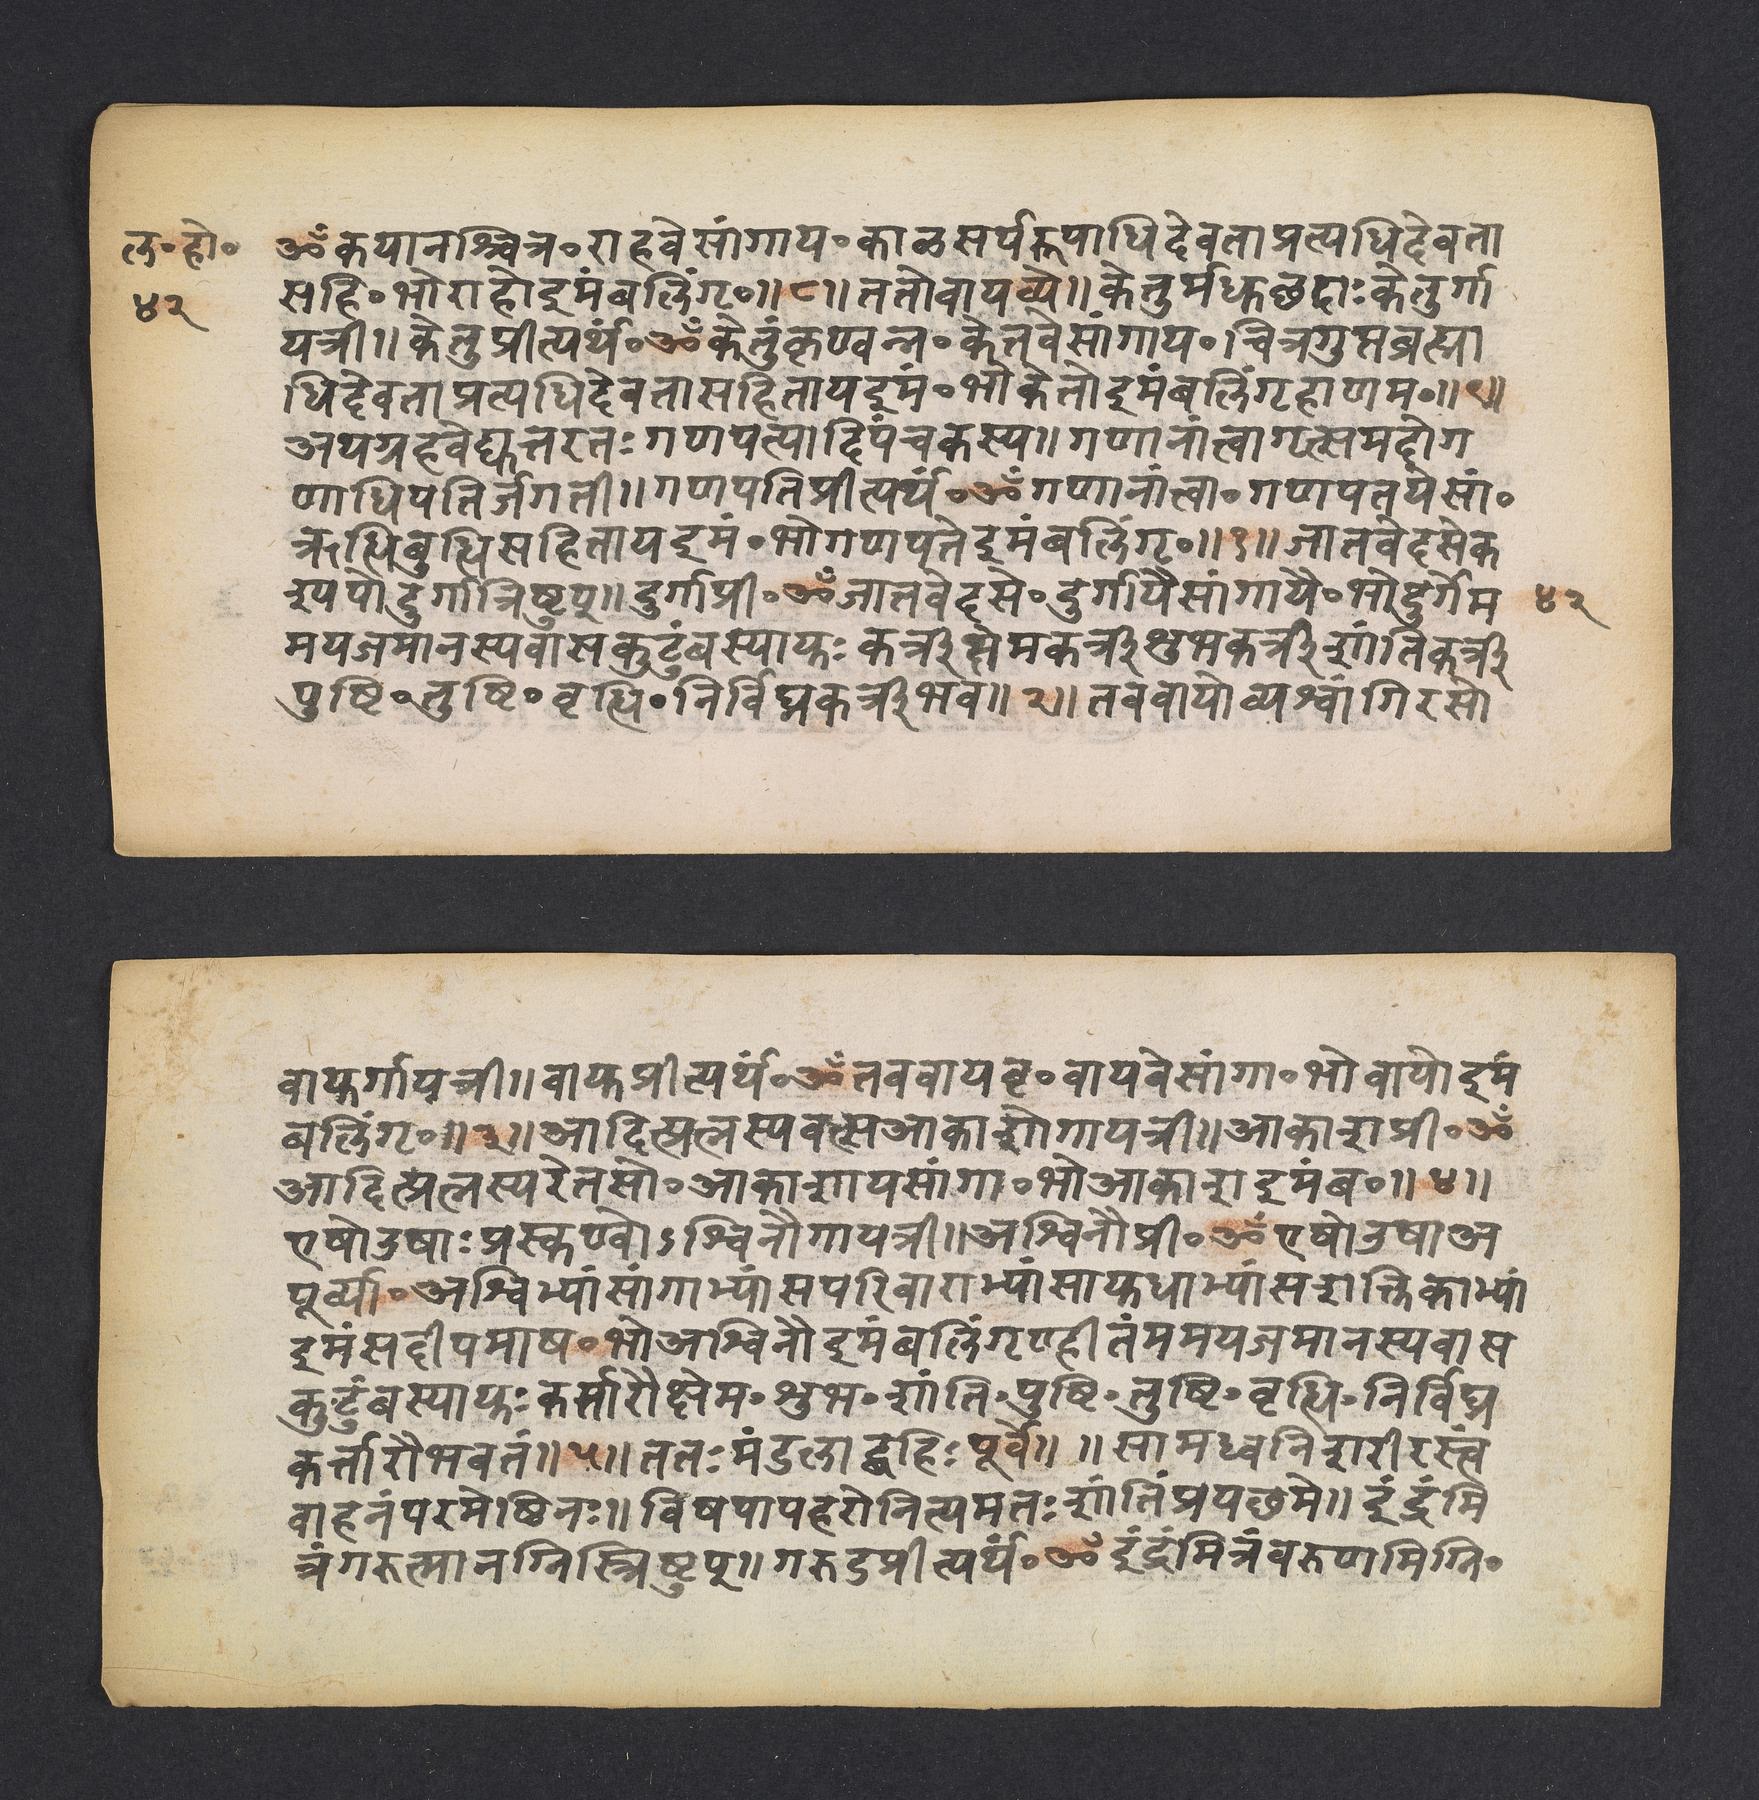 ल॰हो॰
४२
ॐकयानश्चित्र॰राहवेसांगाय॰काळसर्परूपाधिदेवताप्रत्यधिदेवता
सहि॰भोराहोइमंबलिंगृ॰॥८॥ततोवायव्ये॥केतुर्मधुच्छंदाःकेतुर्गा
यत्री॥केतुप्रीत्यर्थं॰ॐकेतुंकृण्वन्न॰केतवेसांगाय॰चित्रगुप्तब्रह्मा
धिदेवताप्रत्यधिदेवतासहितायइमं॰भोकेतोइमंबलिंगृहाणम॰॥९॥
अथग्रहवेद्युत्तरतःगणपत्यादिपंचकस्य॥गणानांत्वागृत्समदोग
णाधिपतिर्जगती॥गणपतिप्रीत्यर्थं॰ॐगणानांत्वा॰गणपतयेसां॰
ऋद्धिबुद्धिसहितायइमं॰भोगणपतेइमंबलिंगृ॰॥१॥जातवेदसेक
श्यपोदुर्गात्रिष्टुप्॥दुर्गाप्री॰ॐजातवेदसे॰दुर्गायैसांगायै॰भोदुर्गेम
४२
मयजमानस्यवासकुटुंबस्यायुःकर्त्रीक्षेमकर्त्रीशुभकर्त्रीशांतिकर्त्री
पुष्टि॰तुष्टि॰वृद्धि॰निर्विघ्नकर्त्रीभव॥२॥तववायोव्यश्वांगिरसो
वायुर्गायत्री॥वायुप्रीत्यर्थं॰ॐतववायवृ॰वायवेसांगा॰भोवायोइमं
बलिंगृ॰॥३॥आदित्प्रत्नस्यवत्सआकाशोगायत्री॥आकाशप्री॰ॐ
आदित्प्रत्नस्यरेतसो॰आकाशायसांगा॰भोआकाशइमंब॰॥४॥
एषोउषाःप्रस्कण्वोऽश्विनौगायत्री॥अश्विनौप्री॰ॐएषोउषाअ
पूर्व्या॰अश्विभ्यांसांगाभ्यांसपरिवाराभ्यांसायुधाभ्यांसशक्तिकाभ्यां
इमंसदीपमाष॰भोअश्विनौइमंबलिंगृण्हीतंममयजमानस्यवास
कुटुंबस्यायुःकर्त्तारौक्षेम॰शुभ॰शांति॰पुष्टि॰तुष्टि॰वृद्धि॰निर्विघ्न
कर्त्तारौभवतं॥५॥ततःमंडलाद्बहिःपूर्वे॥ ॥सामध्वनिशरीरस्त्वं
वाहनंपरमेष्टिनः॥विषपापहरोनित्यमतःशांतिंप्रयछमे॥इंद्रंमि
त्रंगरुत्मानग्निस्त्रिष्टुप्॥गरुडप्रीत्यर्थं॰ॐइंद्रंमित्रंवरुणमग्नि॰